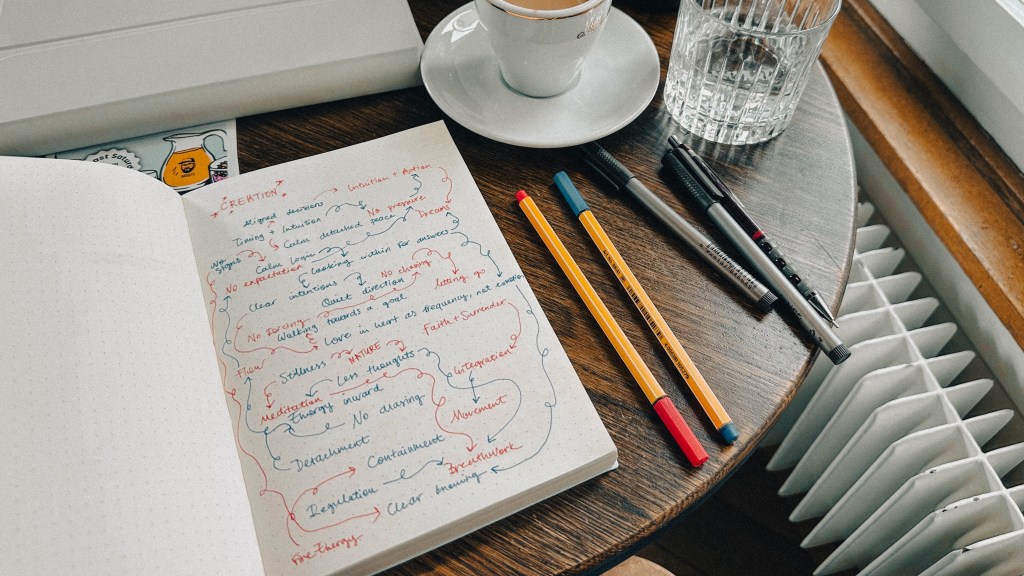 CREATION
Intuition + Action
Aligned decisions
Timing + Intuition
No pressure
Calm detached peace
Dreams
No signs
Calm Logic
Looking within for answers
No expectation
No chasing
Clear intentions
letting go
Quiet direction
No forcing
Walking towards a goal
Love in heart as frequency, not emotion
Faith + Surrender
Flow
Stillness
NATURE
Less thoughts
Integration
Meditation
Energy inward
Movement
No chasing
Detachment
Containment
Breathwork
Regulation
Clear knowing
Fire Energy